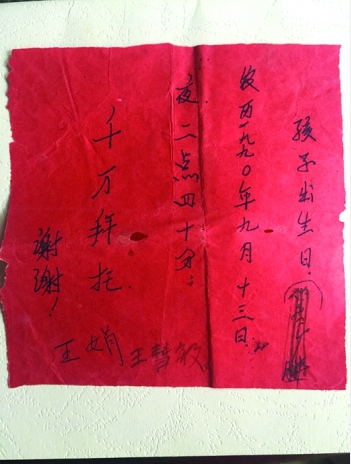 孩子出生日:
一九九〇年九月十三日
夜二点四十分;
千万拜托.
谢谢!
王娟 王慧敏